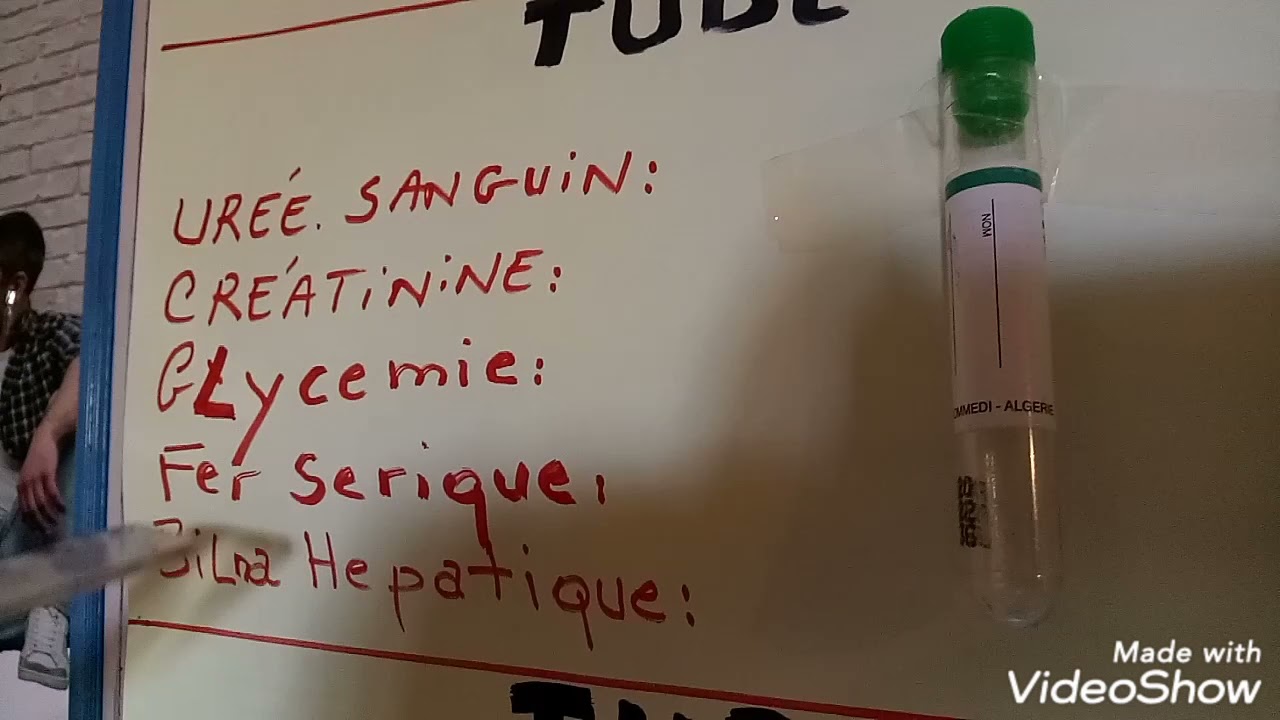 TUBE
URÉE. SANGUIN:
CRÉATININE:
GLycemie:
Fer Serique:
BiLna Hepatique:
NOM
OMMEDI - ALGERIE
Made with
VideoShow